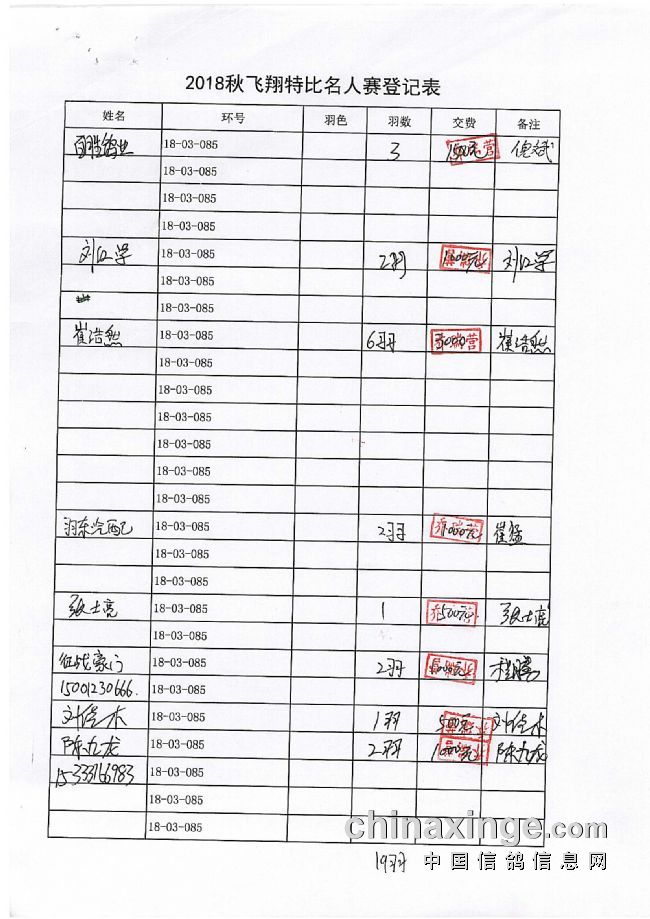 2018秋飞翔特比名人赛登记表
姓名 环号 羽色 羽数 交费 备注
18-03-085 3 1500元
18-03-085
18-03-085
18-03-085
刘红学 18-03-085 2羽 1000元 刘红学
18-03-085
18-03-085
崔浩然 18-03-085 6羽 3000 崔浩然
18-03-085
18-03-085
18-03-085
18-03-085
18-03-085
18-03-085
羽东汽配 18-03-085 2羽 1000元 崔猛
18-03-085
18-03-085
张士亮 18-03-085 1 500 张士亮
18-03-085
征战豪门 18-03-085 2羽 1000元 程鹏
15001230666. 18-03-085
刘俊木 18-03-085 1羽 500元 刘俊木
陈九龙 18-03-085 2羽 1000元 陈九龙
15333166983 18-03-085
18-03-085
18-03-085
chinaxinge.com
19羽 中国信鸽信息网